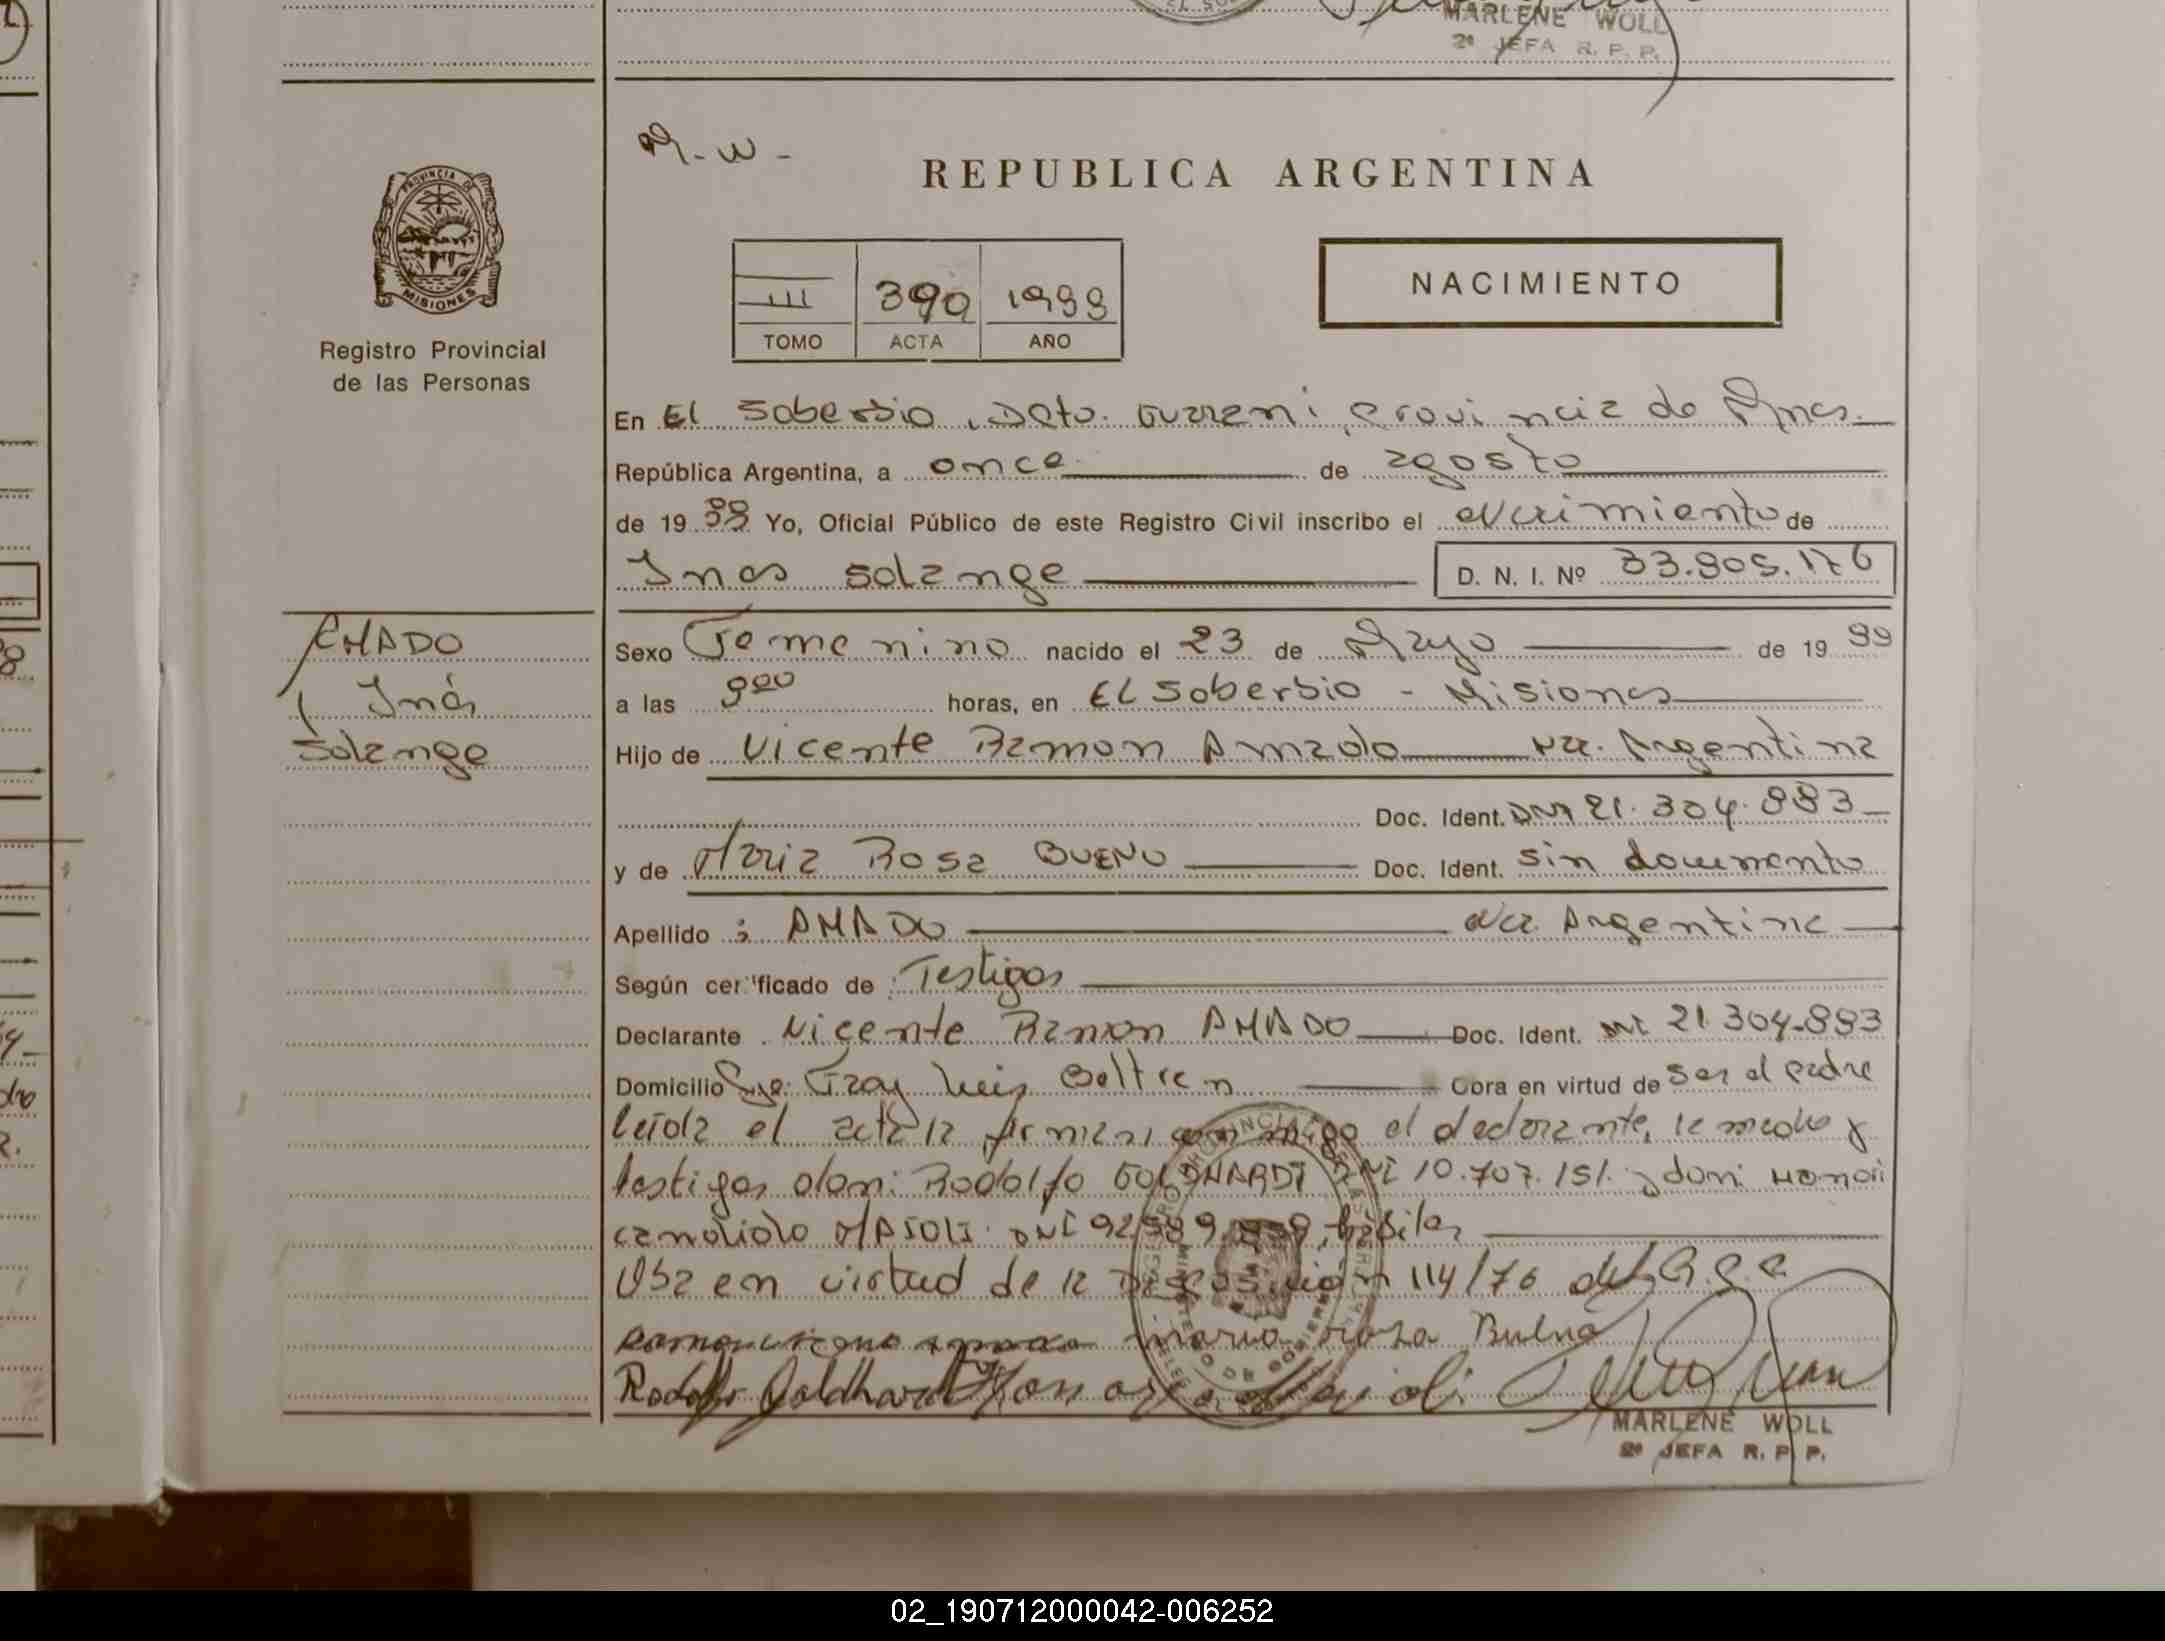 MARLENE WOLL
2ª JEFA R. P. P.
M-W-
REPUBLICA ARGENTINA
PROVINCIA DE
MISIONES
Registro Provincial
de las Personas
III 390 1999
TOMO ACTA AÑO
NACIMIENTO
En El Soberbio, Dpto. Guarani, Provincia de Mnes.
República Argentina, a once de agosto
de 19 99 Yo, Oficial Público de este Registro Civil inscribo el Nacimiento de
Ines Solange D. N. I. Nº 33.905.176
AMADO
Inés
Solange
Sexo Femenino nacido el 23 de Mayo de 19 99
a las 9:00 horas, en El Soberbio - Misiones
Hijo de Vicente Ramon Amado Nac. Argentina
Doc. Ident. DNI 21.304.883
y de Maria Rosa BUENO Doc. Ident. sin documento
Apellido : AMADO Nac Argentina
Según certificado de : Testigos
Declarante Vicente Ramon AMADO Doc. Ident. DNI 21.304.883
Domicilio Fray Luis Beltran Cora en virtud de ser el padre
leida el acta la firman conmigo el declarante, la madre y
testigos don: Rodolfo GOLDHARDT DNI 10.707.151. y don:
candido MASOLI DNI hábiles
Obs en virtud de la Disposición 114/76 del
maria rosa Bueno
Rodolfo Goldhardt
MARLENE WOLL
2ª JEFA R. P. P.
02_190712000042-006252